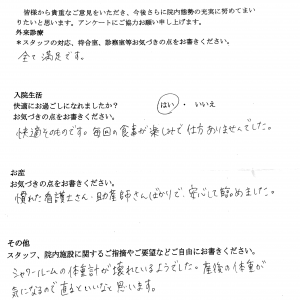 皆様から貴重なご意見をいただき、今後さらに院内態勢の充実に努めてまい
りたいと思います。アンケートにご協力お願い申し上げます。
外来診療
*スタッフの対応、待合室、診察室等お気づきの点をお書きください。
全て満足です。
入院生活
快適にお過ごしになれましたか? はい ・ いいえ
お気づきの点をお書きください。
快適そのものです。毎回の食事が楽しみで仕方ありませんでした。
お産
お気づきの点をお書きください。
慣れた看護士さん・助産師さんばかりで、安心して臨めました。
その他
スタッフ、院内施設に関するご指摘やご要望などご自由にお書きください。
シャワールームの体重計が壊れているようでした。産後の体重が
気になるので直るといいなと思います。